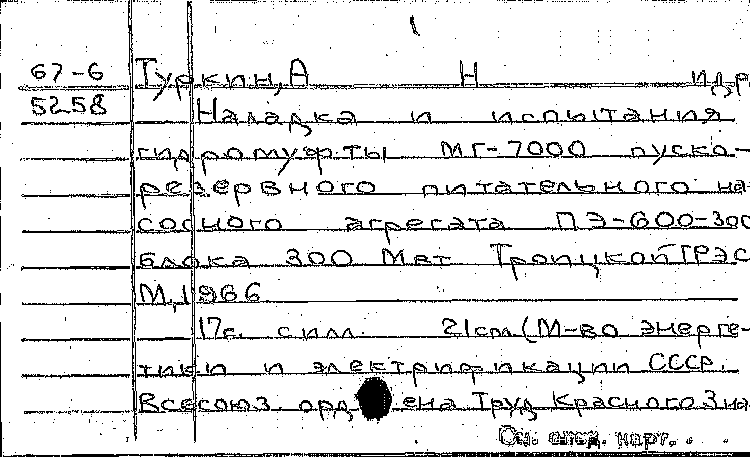 67-6 Туркин, А Н и др
5258 Наладка и испытания
гидромуфты МГ-7000 пуско-
резервного питательного на-
сосного агрегата ПЭ-600-300
блока 300 Мвт Троицкой ГРЭС
М., 1966
17с. с илл. 21см (М-во энерге-
тики и электрификации СССР.
Всесоюз. орд ена Труд Красного Зна
См. след. карт.